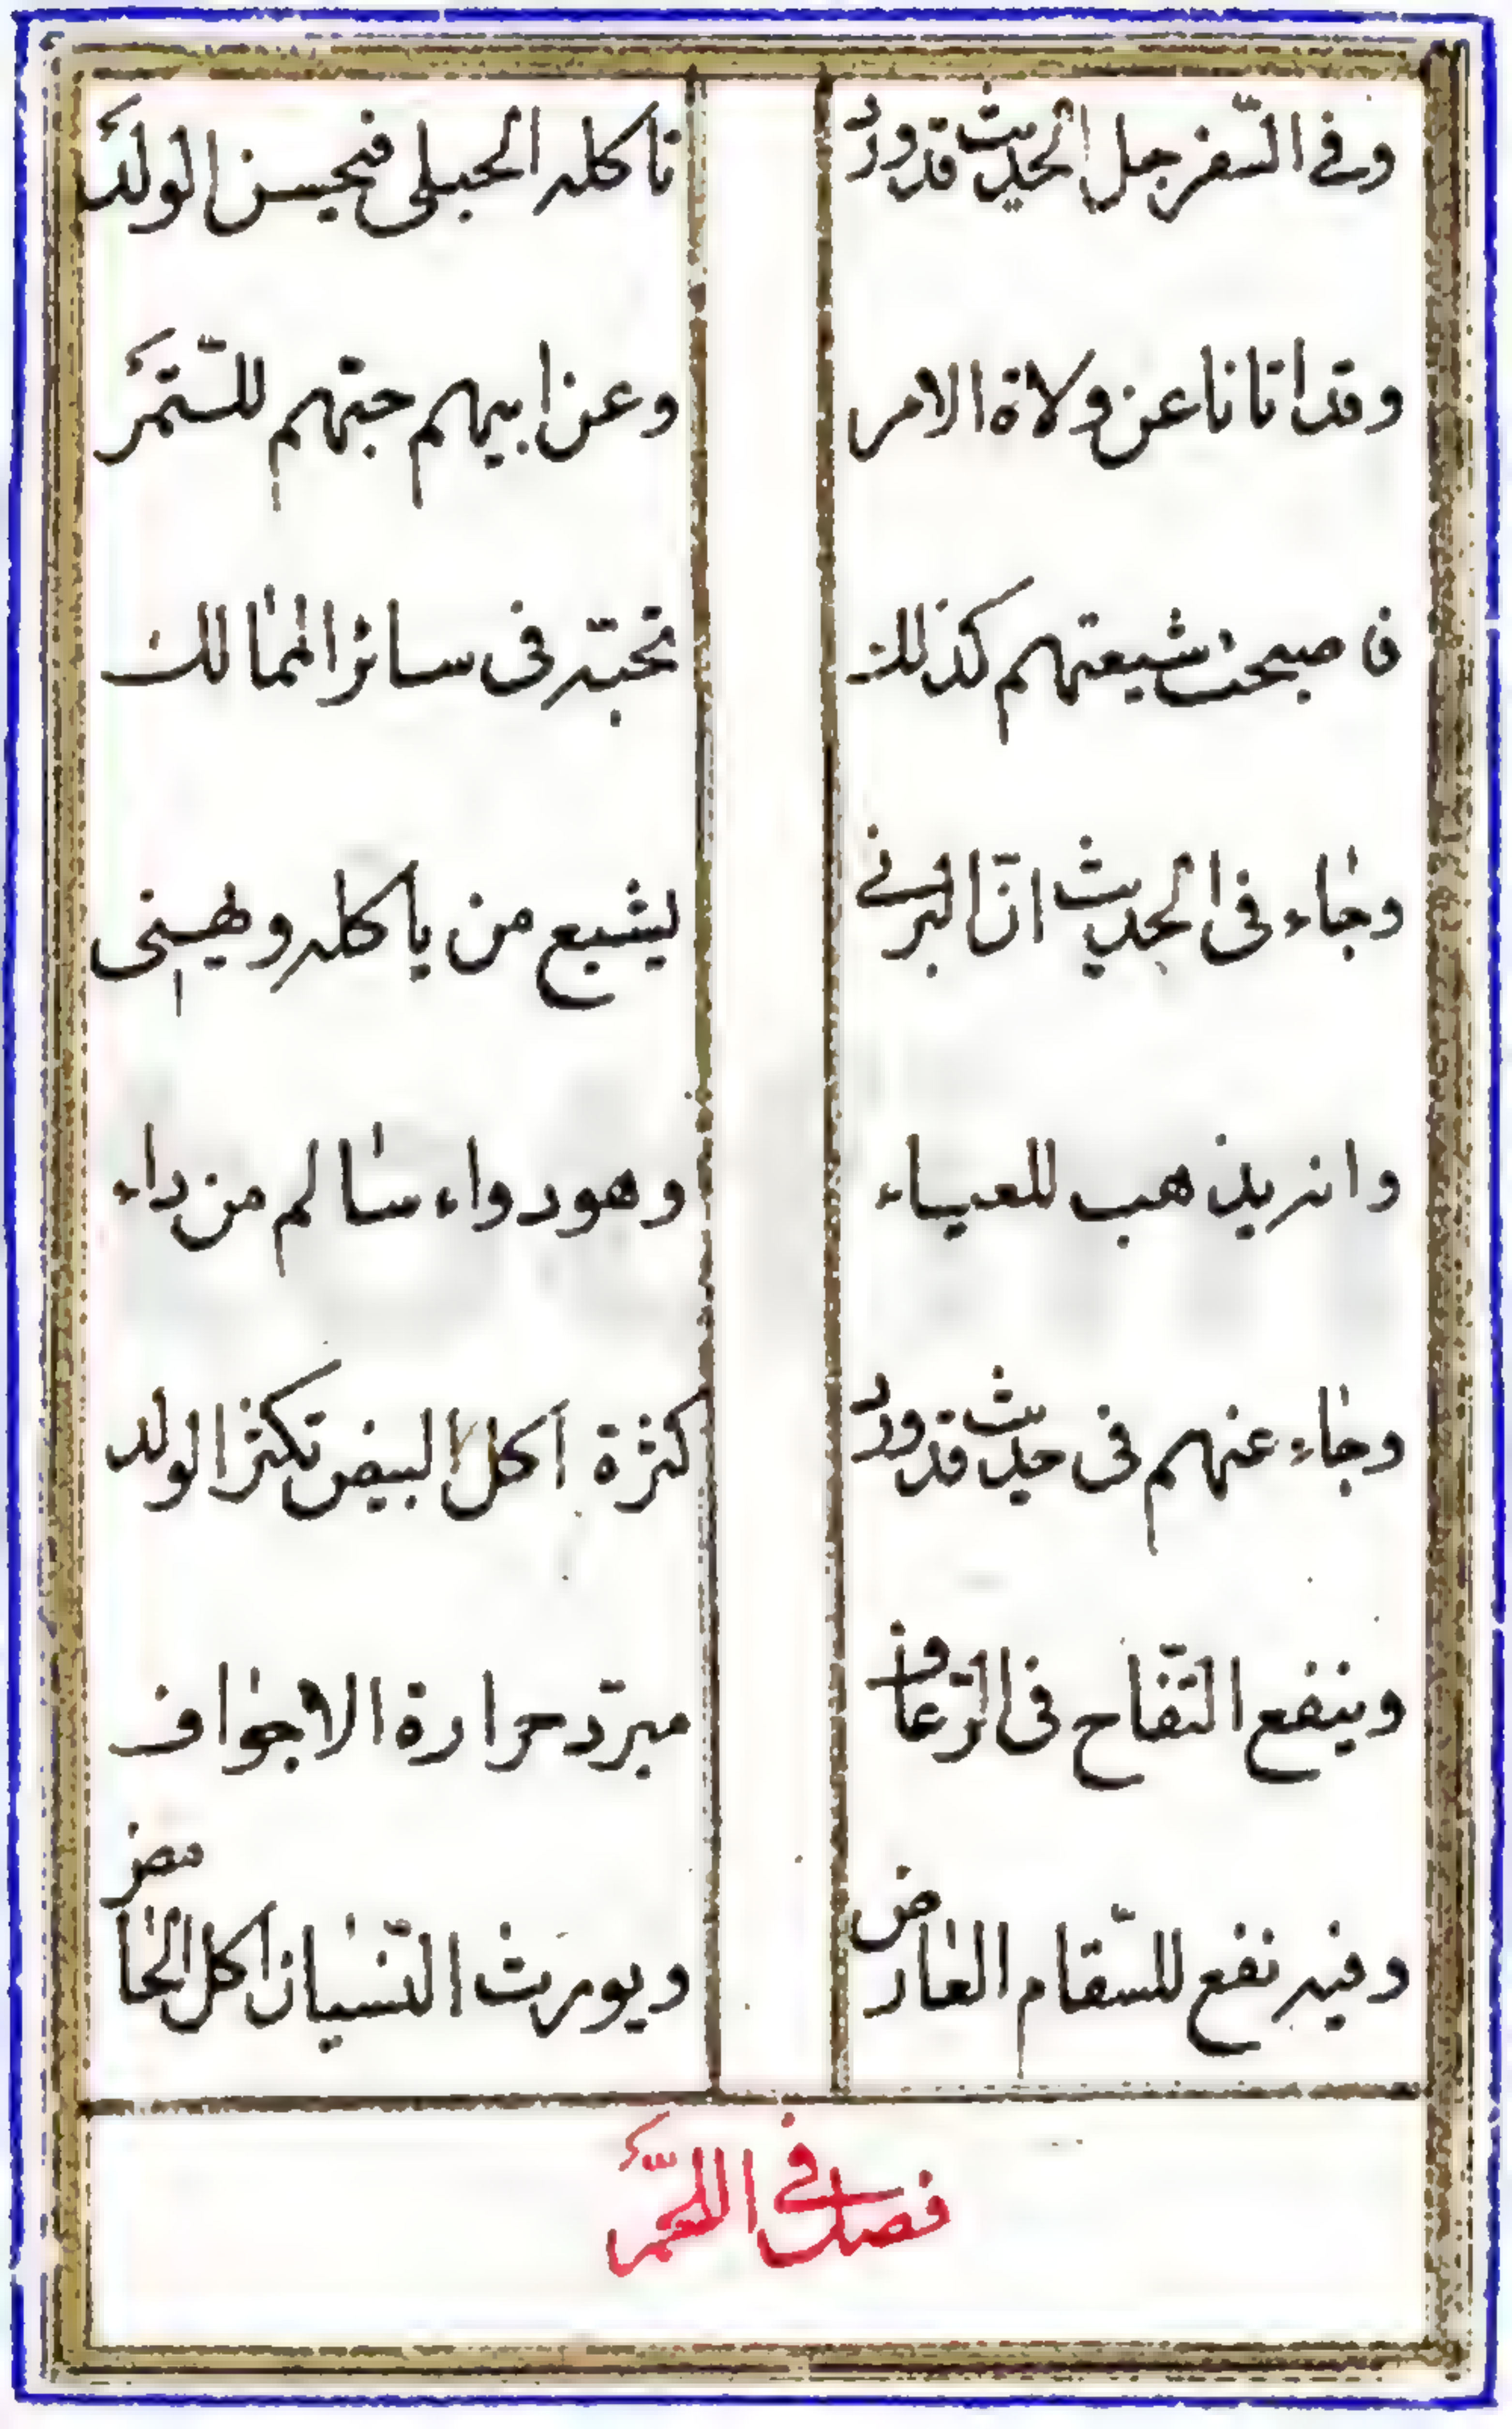 وفي السّفرجل الحديث قد ورد تاكله الحبلى فيحسن الولد
وقد اتانا عن ولاة الامر وعن ابيهم حبّهم للتّمر
فاصبحت شيعتهم كذلك تحبّه في سائر الممالك
وجاء في الحديث انّ البرني يشبع من ياكله ويهني
وانه يذهب للعياء وهو دواء سالم من داء
وجاء عنهم في حديث قد ورد كثرة اكل البيض تكثر الولد
وينفع التّفاح في الرّعاف مبرّد حرارة الاجواف
وفيه نفع للسّقام العارض ويورث النّسيان اكل الحامض
فصل في اللّحم